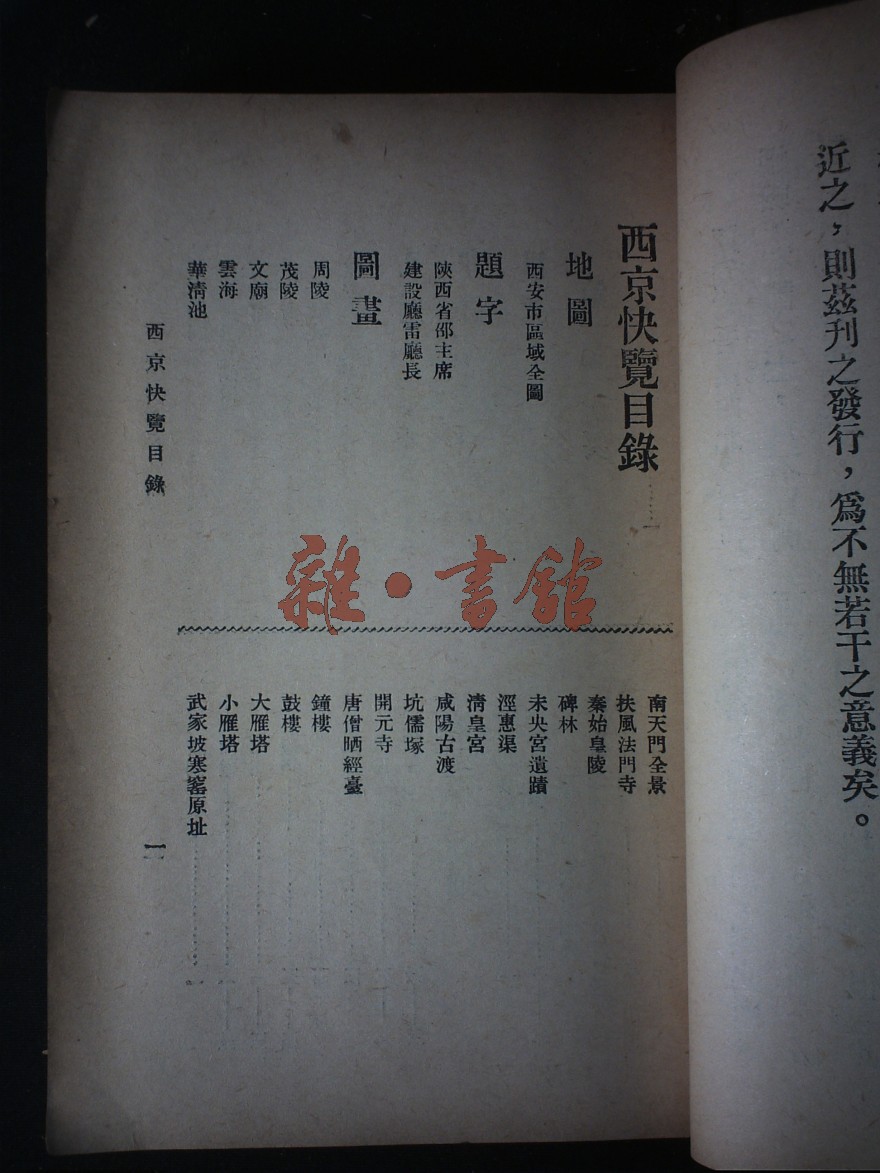 近之，則茲刋之發行，爲不無若干之意義矣。
西京快覽目錄
地圖
西安市區域全圖
題字
陝西省邵主席
建設廳雷廳長
圖畫
周陵
茂陵
文廟
雲海
華淸池
南天門全景
扶風法門寺
秦始皇陵
碑林
未央宮遺蹟
涇惠渠
淸皇宮
咸陽古渡
坑儒塚
開元寺
唐僧晒經臺
鐘樓
鼓樓
大雁塔
小雁塔
武家坡寒窰原址
西京快覽目錄
一
雜·書館